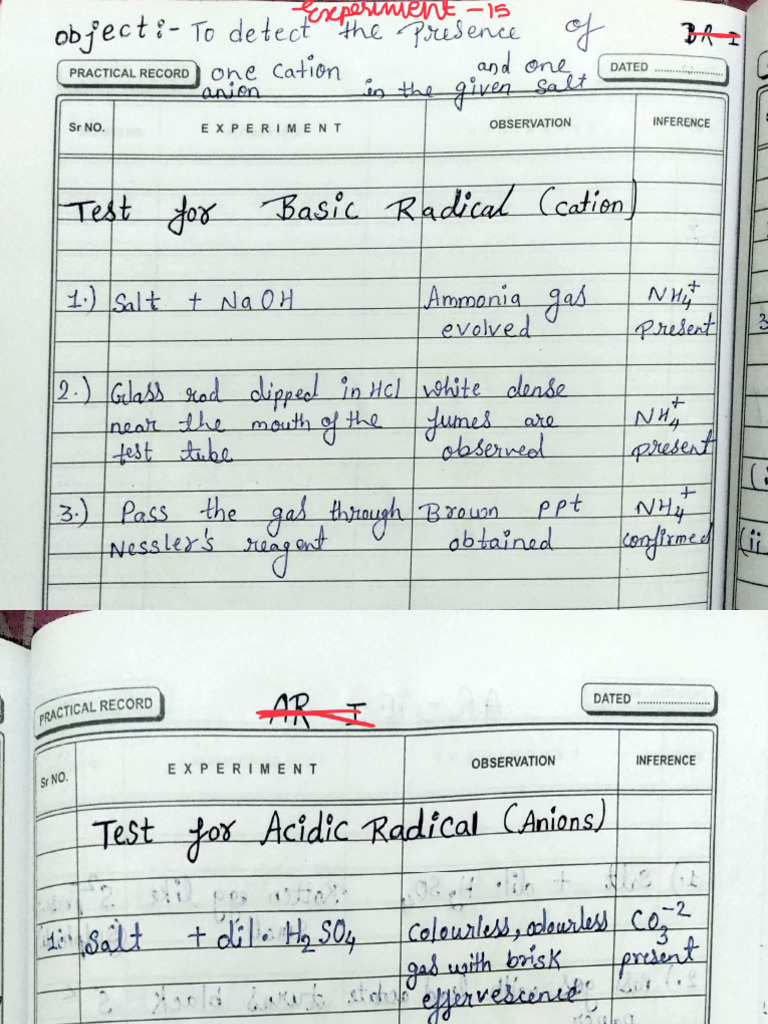 Experiment - 15
Object :- To detect the Presence of BR-I
PRACTICAL RECORD one Cation and one DATED
anion in the given salt
Sr NO. EXPERIMENT OBSERVATION INFERENCE
Test for Basic Radical (cation)
1.) Salt + NaOH Ammonia gas NH4+
evolved present
2.) Glass rod dipped in HCl white dense
near the mouth of the fumes are NH4+
test tube observed present
3.) Pass the gas through Brown ppt NH4+
Nessler's reagent obtained confirmed
3
(ii
PRACTICAL RECORD AR I DATED
Sr NO. EXPERIMENT OBSERVATION INFERENCE
Test for Acidic Radical (Anions)
1. Salt + dil. H2SO4 colourless, odourless CO3-2
gas with brisk present
effervescence